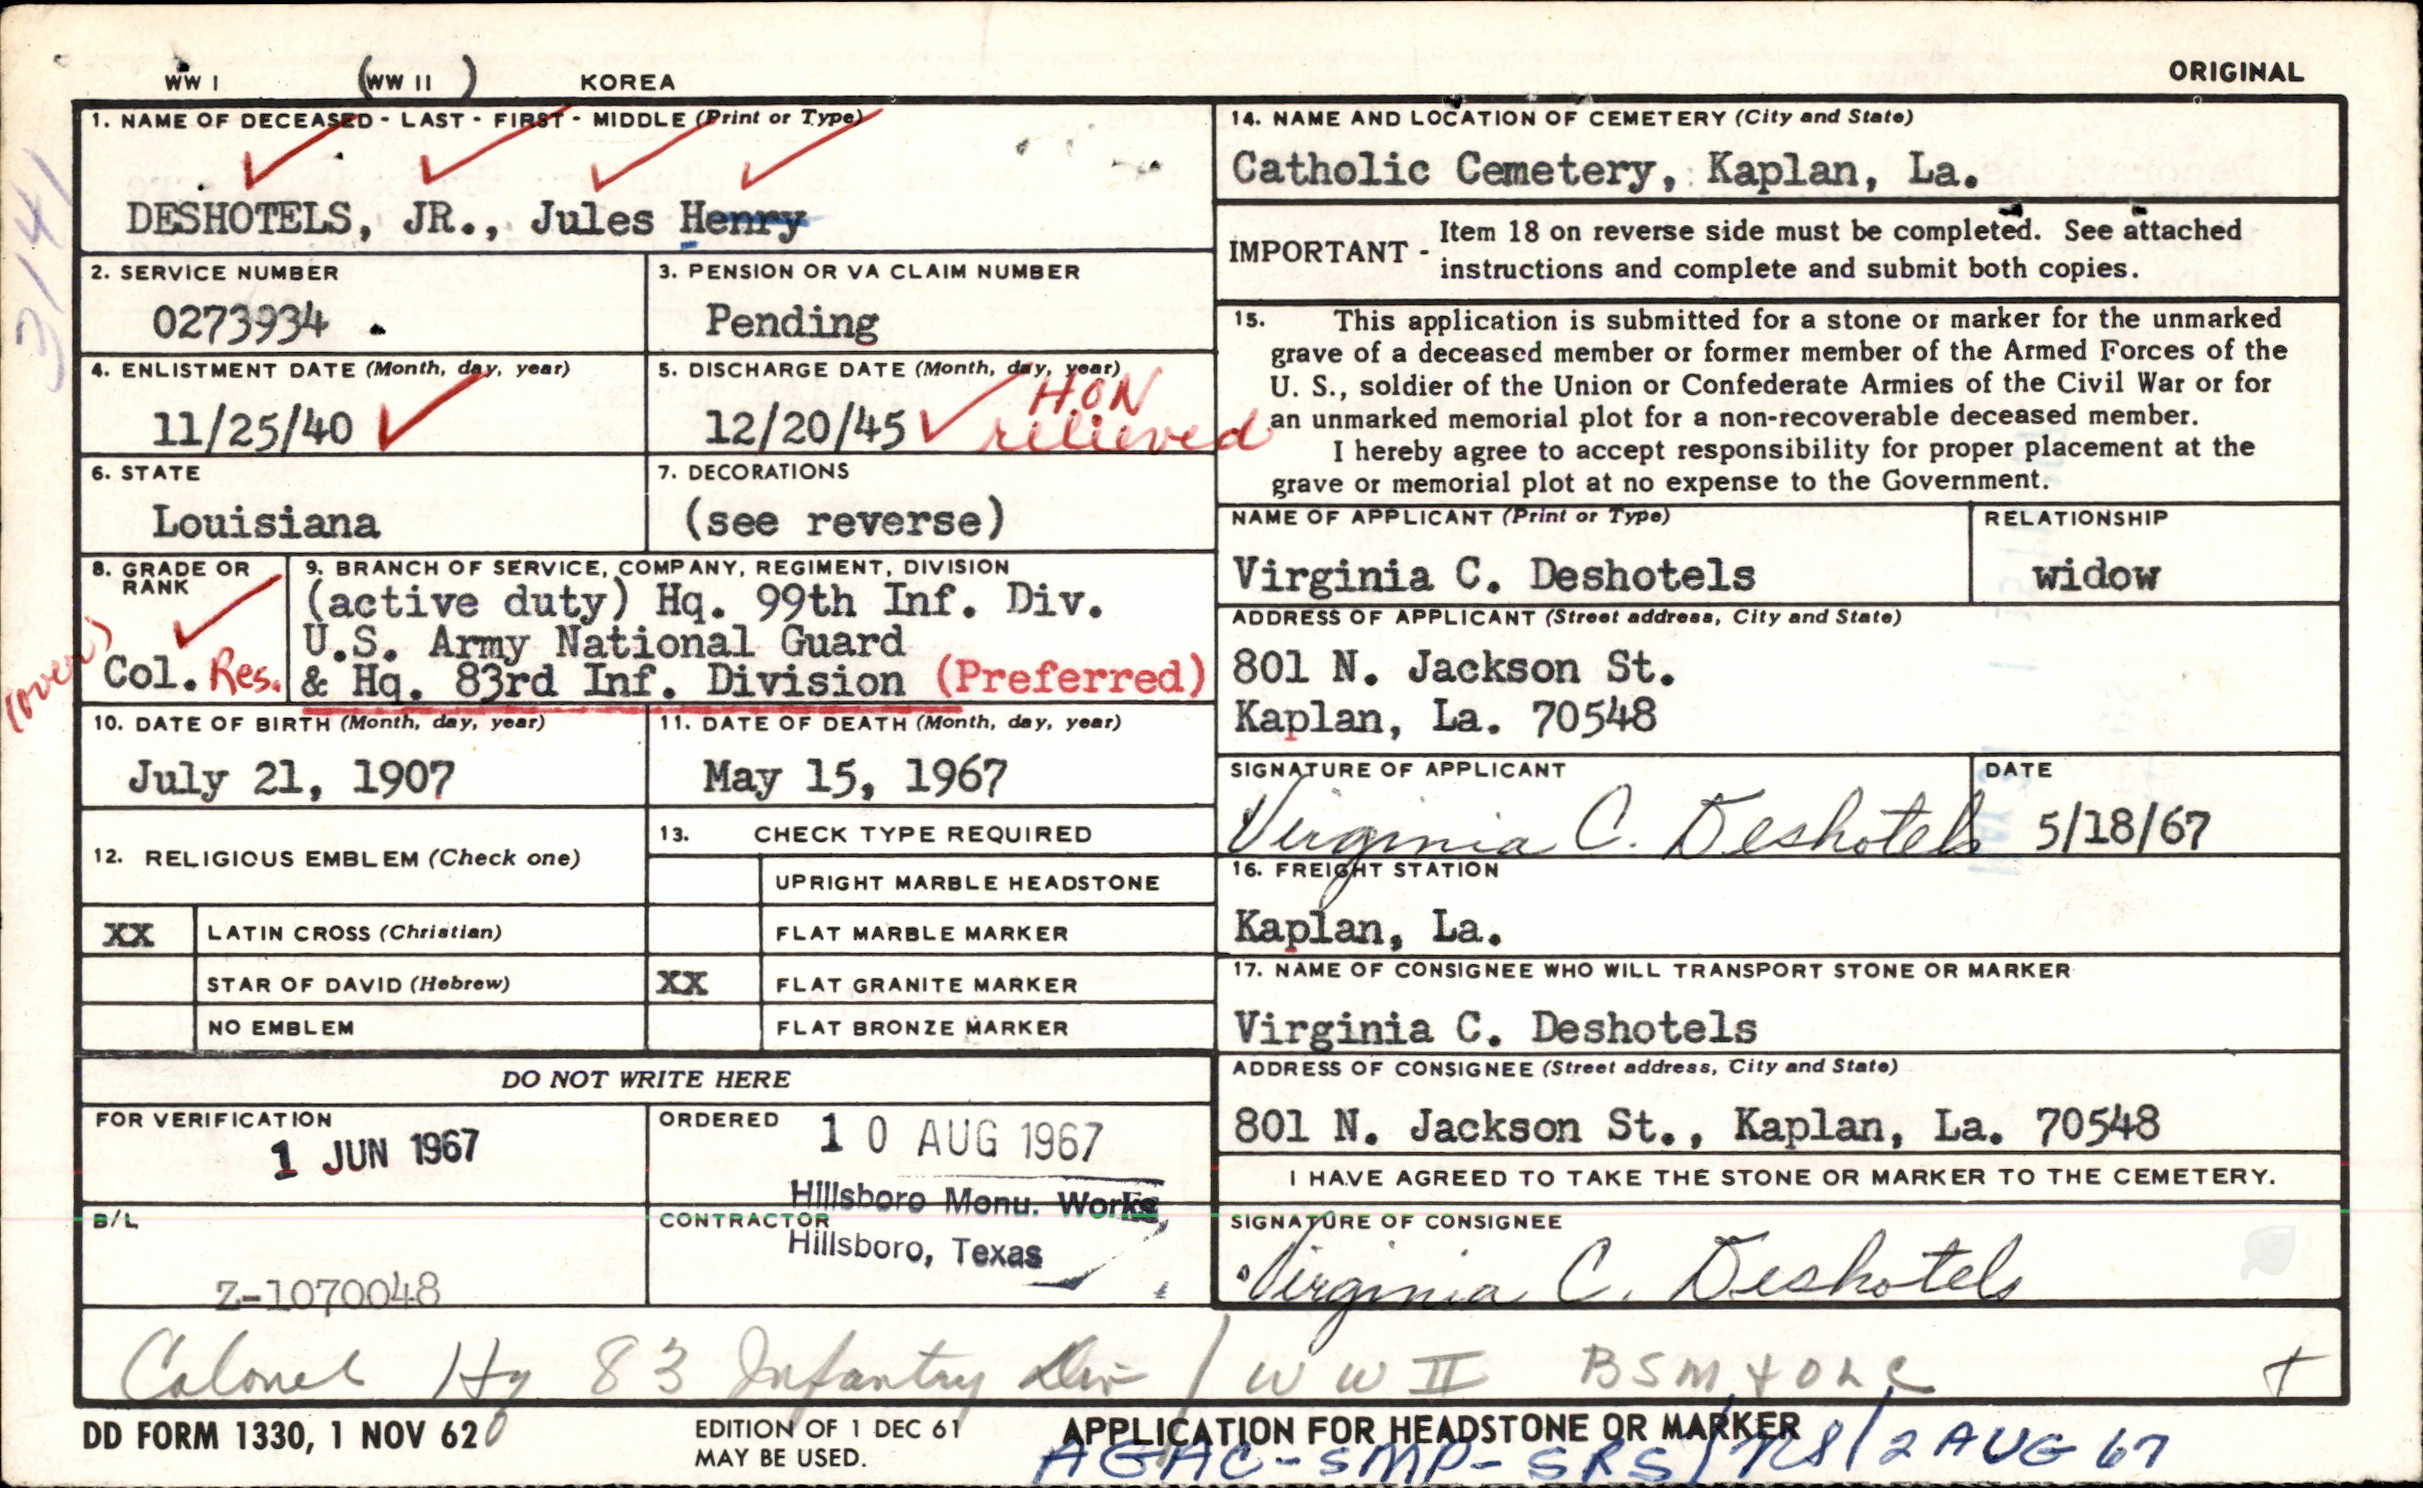 WW I (WW II) KOREA
ORIGINAL
1. NAME OF DECEASED - LAST - FIRST - MIDDLE (Print or Type)
DESHOTELS, JR., Jules Henry
3141
2. SERVICE NUMBER
0273934
3. PENSION OR VA CLAIM NUMBER
Pending
4. ENLISTMENT DATE (Month, day, year)
11/25/40
5. DISCHARGE DATE (Month, day, year)
12/20/45 HON
relieved
6. STATE
Louisiana
7. DECORATIONS
(see reverse)
8. GRADE OR
RANK
Col. Res.
(over)
9. BRANCH OF SERVICE, COMPANY, REGIMENT, DIVISION
(active duty) Hq. 99th Inf. Div.
U.S. Army National Guard
& Hq. 83rd Inf. Division (Preferred)
10. DATE OF BIRTH (Month, day, year)
July 21, 1907
11. DATE OF DEATH (Month, day, year)
May 15, 1967
12. RELIGIOUS EMBLEM (Check one)
XX LATIN CROSS (Christian)
STAR OF DAVID (Hebrew)
NO EMBLEM
13. CHECK TYPE REQUIRED
UPRIGHT MARBLE HEADSTONE
FLAT MARBLE MARKER
XX FLAT GRANITE MARKER
FLAT BRONZE MARKER
DO NOT WRITE HERE
FOR VERIFICATION
1 JUN 1967
ORDERED
10 AUG 1967
B/L
Z-1070048
Hillsboro Monu. Works,
CONTRACTOR
Hillsboro, Texas
14. NAME AND LOCATION OF CEMETERY (City and State)
Catholic Cemetery, Kaplan, La.
IMPORTANT - Item 18 on reverse side must be completed. See attached
instructions and complete and submit both copies.
15. This application is submitted for a stone or marker for the unmarked
grave of a deceased member or former member of the Armed Forces of the
U. S., soldier of the Union or Confederate Armies of the Civil War or for
an unmarked memorial plot for a non-recoverable deceased member.
I hereby agree to accept responsibility for proper placement at the
grave or memorial plot at no expense to the Government.
NAME OF APPLICANT (Print or Type)
Virginia C. Deshotels
RELATIONSHIP
widow
ADDRESS OF APPLICANT (Street address, City and State)
801 N. Jackson St.
Kaplan, La. 70548
SIGNATURE OF APPLICANT
Virginia C. Deshotels
DATE
5/18/67
16. FREIGHT STATION
Kaplan, La.
17. NAME OF CONSIGNEE WHO WILL TRANSPORT STONE OR MARKER
Virginia C. Deshotels
ADDRESS OF CONSIGNEE (Street address, City and State)
801 N. Jackson St., Kaplan, La. 70548
I HAVE AGREED TO TAKE THE STONE OR MARKER TO THE CEMETERY.
SIGNATURE OF CONSIGNEE
Virginia C. Deshotels
Colonel Hq 83 Infantry Div / WW II BSM & OLC
DD FORM 1330, 1 NOV 62
EDITION OF 1 DEC 61
MAY BE USED.
APPLICATION FOR HEADSTONE OR MARKER
AGAC-SMP-SRS/ 2 AUG 67